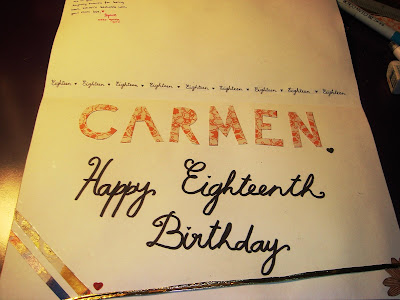 Eighteen ♥ Eighteen ♥ Eighteen ♥ Eighteen ♥ Eighteen ♥ Eighteen ♥ Eighteen ♥ Eighteen
CARMEN.
Happy Eighteenth
Birthday